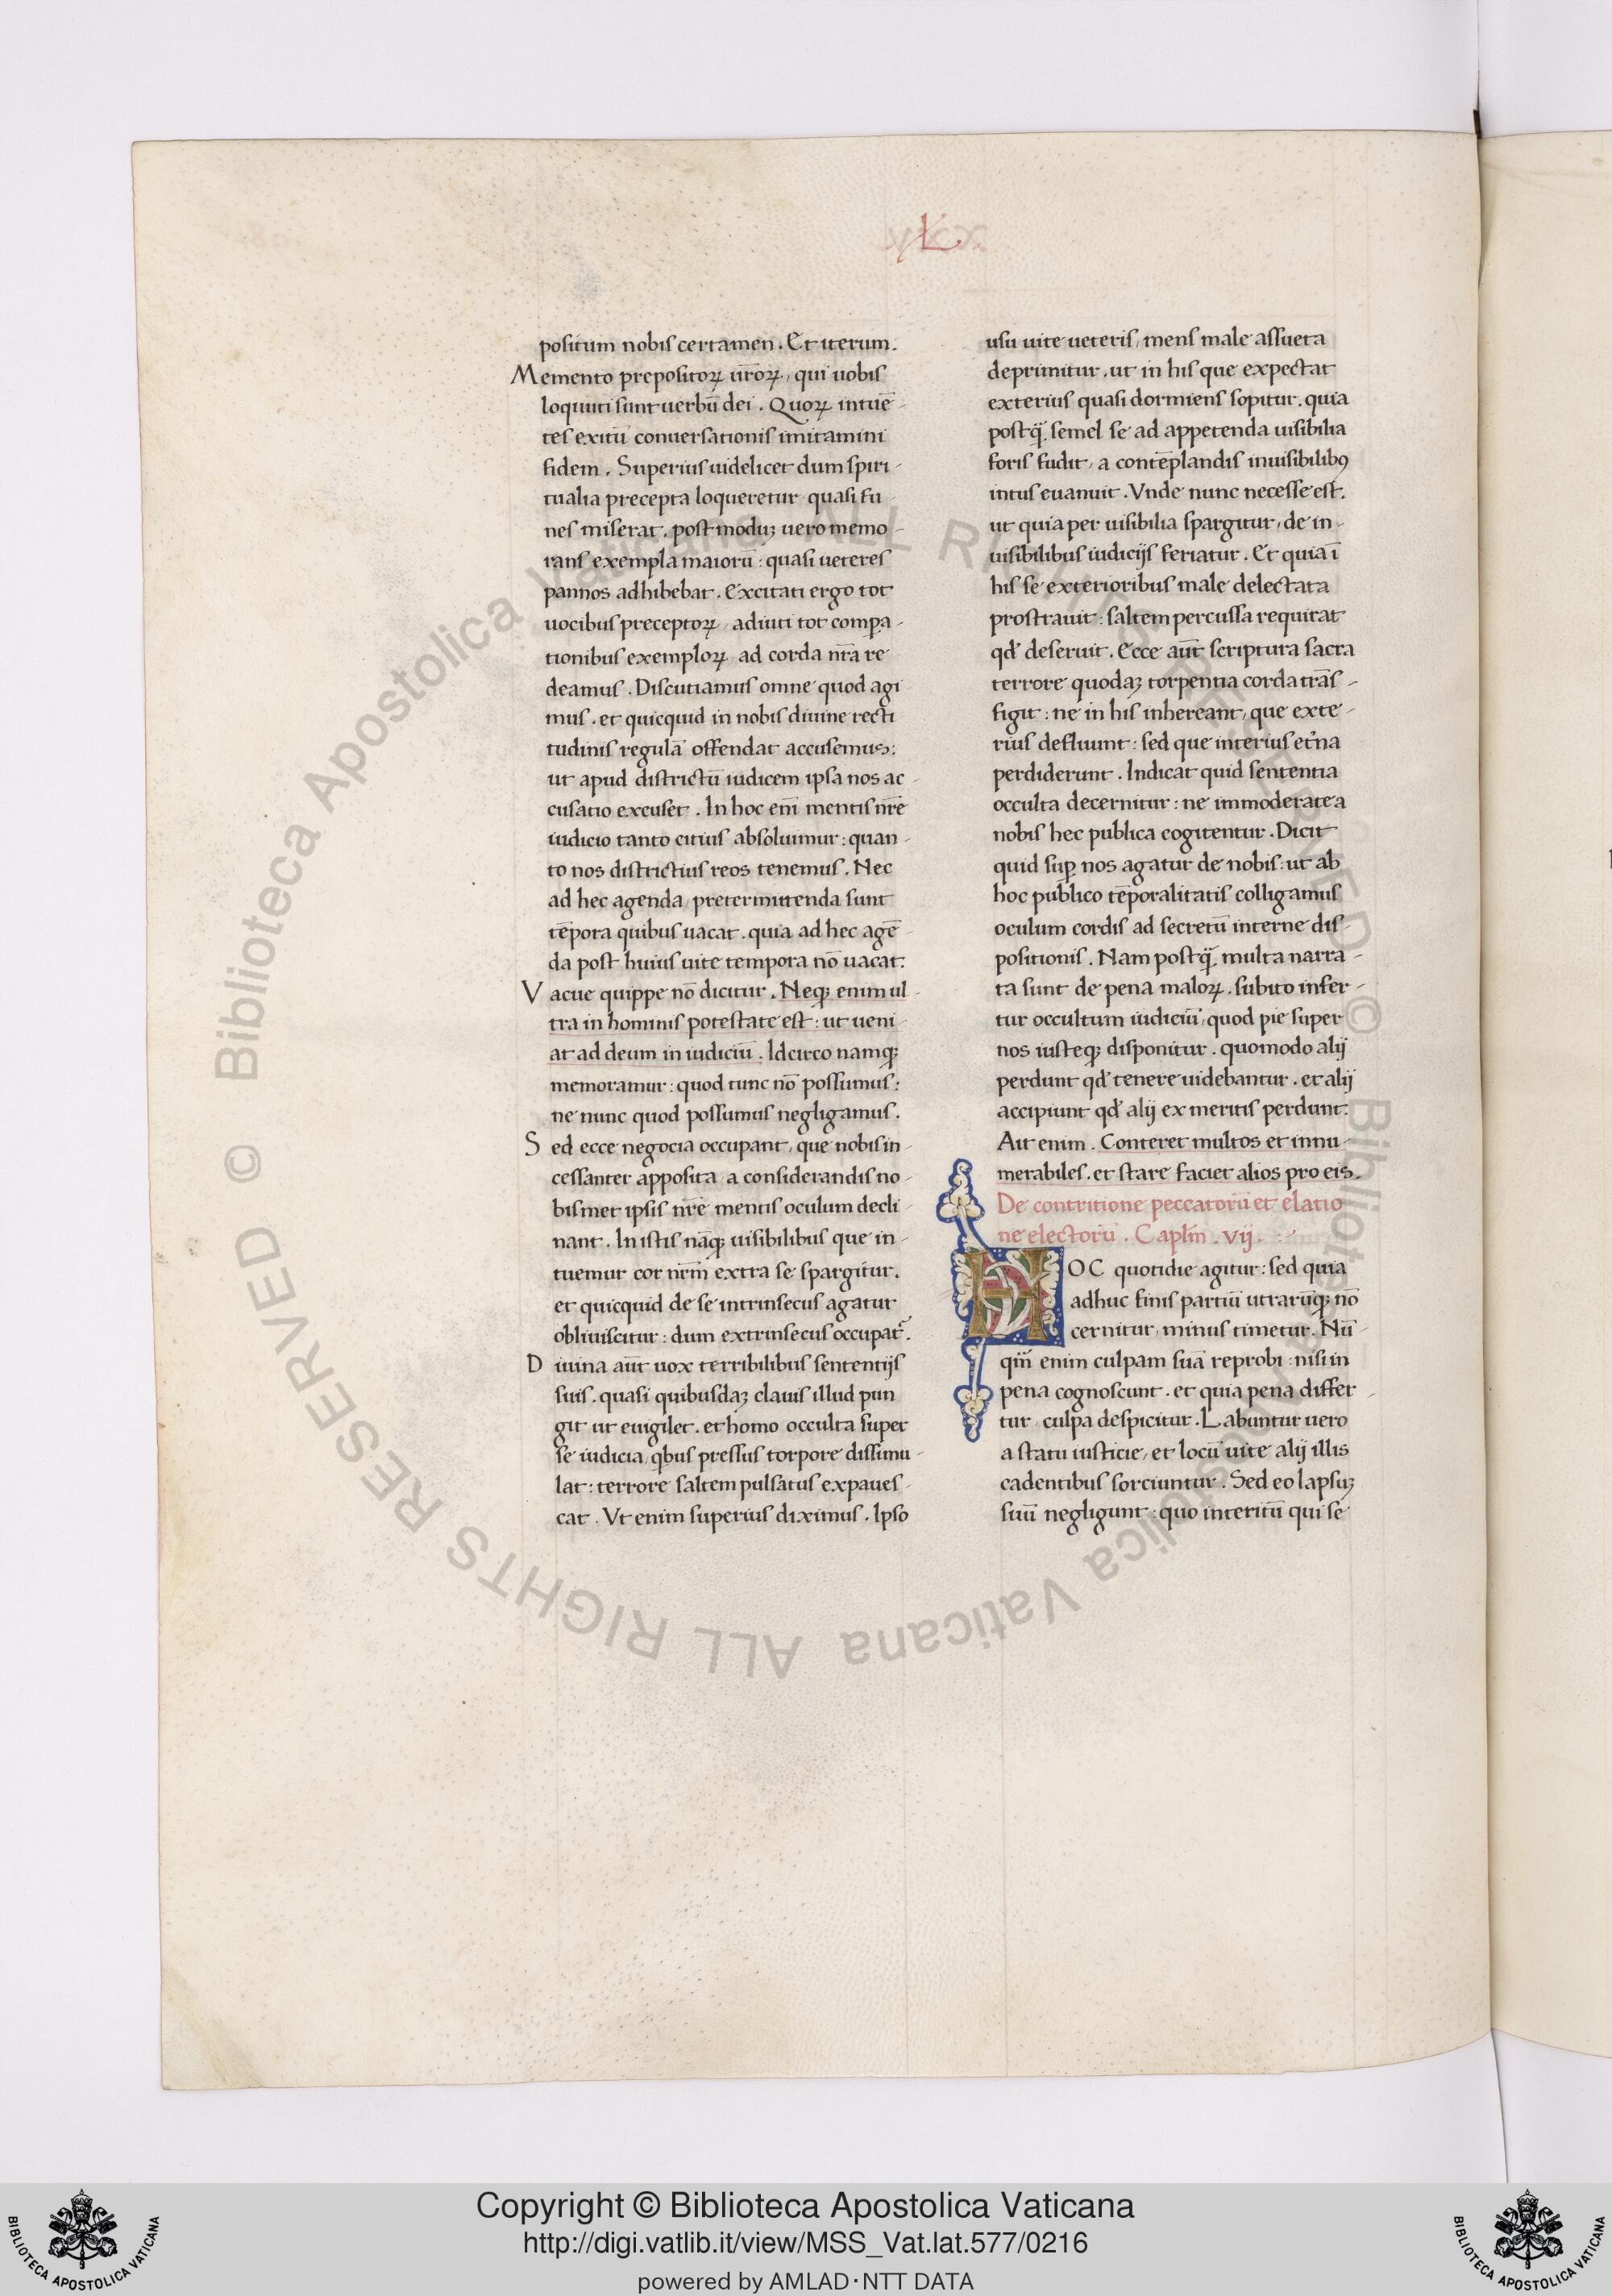 L
positum nobis certamen. Et iterum.
Memento prepositoꝝ ur̄oꝝ, qui uobis
loquuti sunt uerbū dei. Quoꝝ intuē-
tes exitū conuersationis imitamini
fidem. Superius uidelicet dum spiri-
tualia precepta loqueretur quasi fu-
nes miserat. postmoduꝫ uero memo-
rans exempla maiorū: quasi ueteres
pannos adhibebat. Excitati ergo tot
uocibus preceptoꝝ, adiuti tot compa-
tionibus exemploꝝ, ad corda nr̄a re
deamus. Discutiamus omne quod agi
mus. et quicquid in nobis diuine recti
tudinis regulā offendat accusemus:
ut apud districtū iudicem ipsa nos ac-
cusatio excuset. In hoc eni̅ mentis nr̄e
iudicio tanto citius absoluimur: quan-
to nos districtius reos tenemus. Nec
ad hec agenda, pretermittenda sunt
tēpora quibus uacat. quia ad hec agē-
da post huius uite tempora nō uacat.
Vacue quippe nō dicitur. Neqꝫ enim ul
tra in hominis potestate est: ut ueni-
at ad deum in iudiciū. Idcirco namqꝫ
memoramur: quod tunc nō possumus:
ne nunc quod possumus negligamus.
Sed ecce negocia occupant, que nobis in-
cessanter apposita a considerandis no-
bismet ipsis nr̄e mentis oculum decli-
nant. In istis nāqꝫ uisibilibus que in-
tuemur cor nr̄m extra se spargitur.
et quicquid de se intrinsecus agatur
obliuiscitur: dum extrinsecus occupat᷑.
Diuina aūt uox terribilibus sententijs
suis. quasi quibusdaꝫ clauis illud pun
git ut euigilet. et homo occulta super
se iudicia, qbus pressus torpore dissimu-
lat: terrore saltem pulsatus expaues-
cat. Vt enim superius diximus. Ipso
usu uite ueteris, mens male assueta
deprimitur. ut in his que expectat
exterius quasi dormiens sopitur. quia
postq̄. semel se ad appetenda uisibilia
foris fudit, a contēplandis inuisibilibꝰ
intus euanuit. Vnde nunc necesse est.
ut quia per uisibilia spargitur, de in-
uisibilibus iudicijs feriatur. Et quia ī
his se exterioribus male delectata
prostrauit: saltem percussa requirat
qd̄ deseruit. Ecce aūt scriptura sacra
terrore quodaꝫ torpentia corda trās-
figit: ne in his inhereant, que exte-
rius defluunt: sed que interius et᷑na
perdiderunt. Indicat quid sententia
occulta decernitur: ne immoderate a
nobis hec publica cogitentur. Dicit
quid suꝑ nos agatur de nobis: ut ab
hoc publico tēporalitatis colligamus
oculum cordis ad secretū interne dis-
positionis. Nam postq̄. multa narra-
ta sunt de pena maloꝝ. subito infer-
tur occultum iudiciū, quod pie super
nos iusteqꝫ disponitur. quomodo alij
perdunt qd̄ tenere uidebantur. et alij
accipiunt qd̄ alij ex meritis perdunt.
Ait enim. Conteret multos et innu-
merabiles. et stare faciet alios pro eis.
De contritione peccatorū et elatio
ne electorū. Caplm̄. vij.
HOC quotidie agitur: sed quia
adhuc finis partiū utrarūqꝫ nō
cernitur, minus timetur. Nū-
qm̄ enim culpam suā reprobi: nisi in
pena cognoscunt. et quia pena differ-
tur, culpa despicitur. Labuntur uero
a statu iusticie, et locū uite alij illis
cadentibus sorciuntur. Sed eo lapsuꝫ
suū negligunt: quo interitū qui se
© Biblioteca Apostolica Vaticana ALL RIGHTS RESERVED
© Biblioteca Apostolica Vaticana ALL RIGHTS RESERVED
Copyright © Biblioteca Apostolica Vaticana
http://digi.vatlib.it/view/MSS_Vat.lat.577/0216
powered by AMLAD·NTT DATA
BIBLIOTECA APOSTOLICA VATICANA
BIBLIOTECA APOSTOLICA VATICANA